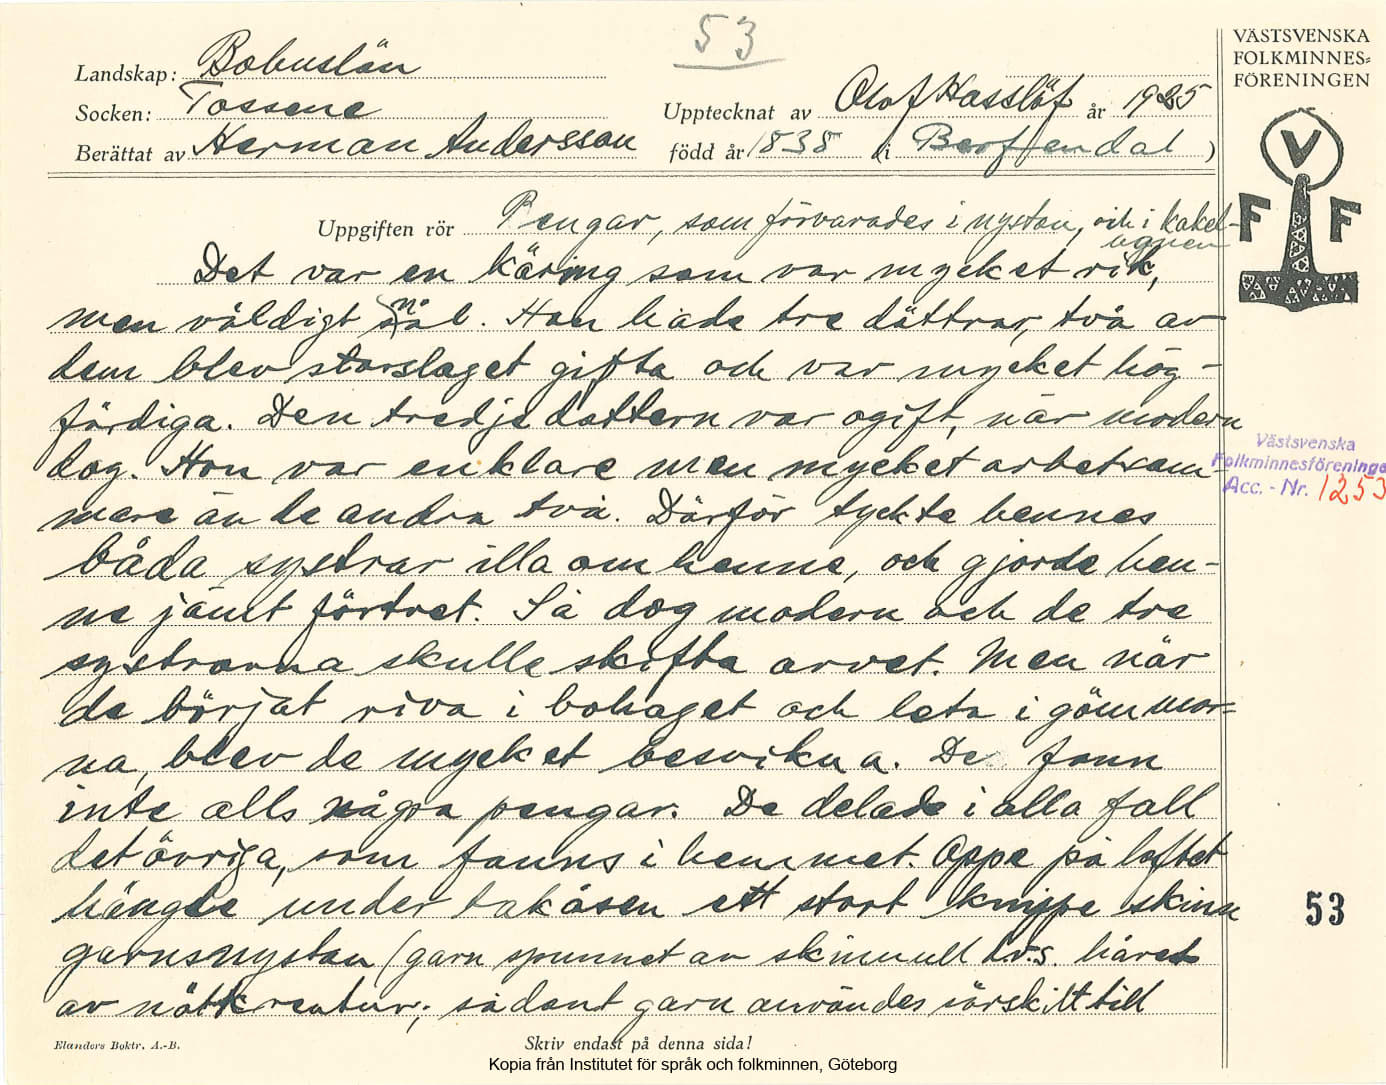 53
VÄSTSVENSKA
FOLKMINNES=
FÖRENINGEN
Landskap: Bohuslän
Socken: Tossene
Upptecknat av Olof Hasslöf år 1925
Berättat av Herman Andersson
född år 1838 (i Berfendal)
V
F F
Uppgiften rör Pengar, som förvarades i nystan, och i kakel-
ugnen
Det var en käring som var mycket rik,
men väldigt snål. Hon hade tre döttrar, två av
dem blev storslaget gifta och var mycket hög-
färdiga. Den tredje dottern var ogift, när modern
dog. Hon var enklare men mycket arbetsam-
mare än de andra två. Därför tyckte hennes
båda systrar illa om henne, och gjorde hen-
ne jämt förtret. Så dog modern och de tre
systrarna skulle skifta arvet. Men när
de börjat riva i bohaget och leta i gömmor=
na, blev de mycket besvikna. De fann
inte alls några pengar. De delade i alla fall
det övriga, som fanns i hemmet. Oppe på loftet
hängde under takåsen ett stort knippe skinn
garnsnystan (garn spunnet av skinnull d.v.s. håret
av nötkreatur; sådant garn användes särskilt till
Västsvenska
Folkminnesföreninge
Acc. - Nr. 1253
53
Elanders Boktr. A.-B.
Skriv endast på denna sida!
Kopia från Institutet för språk och folkminnen, Göteborg